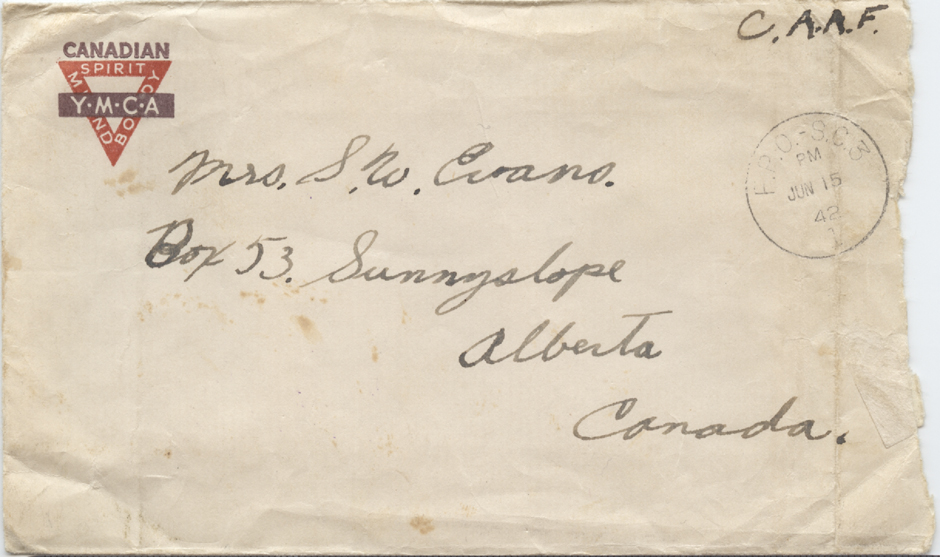 C.A.A.F.
CANADIAN
SPIRIT
MIND
BODY
Y·M·C·A
F.P.O.-S.C.3
PM
JUN 15
42
1
Mrs. S.W. Evans.
Box 53. Sunnyslope
Alberta
Canada.